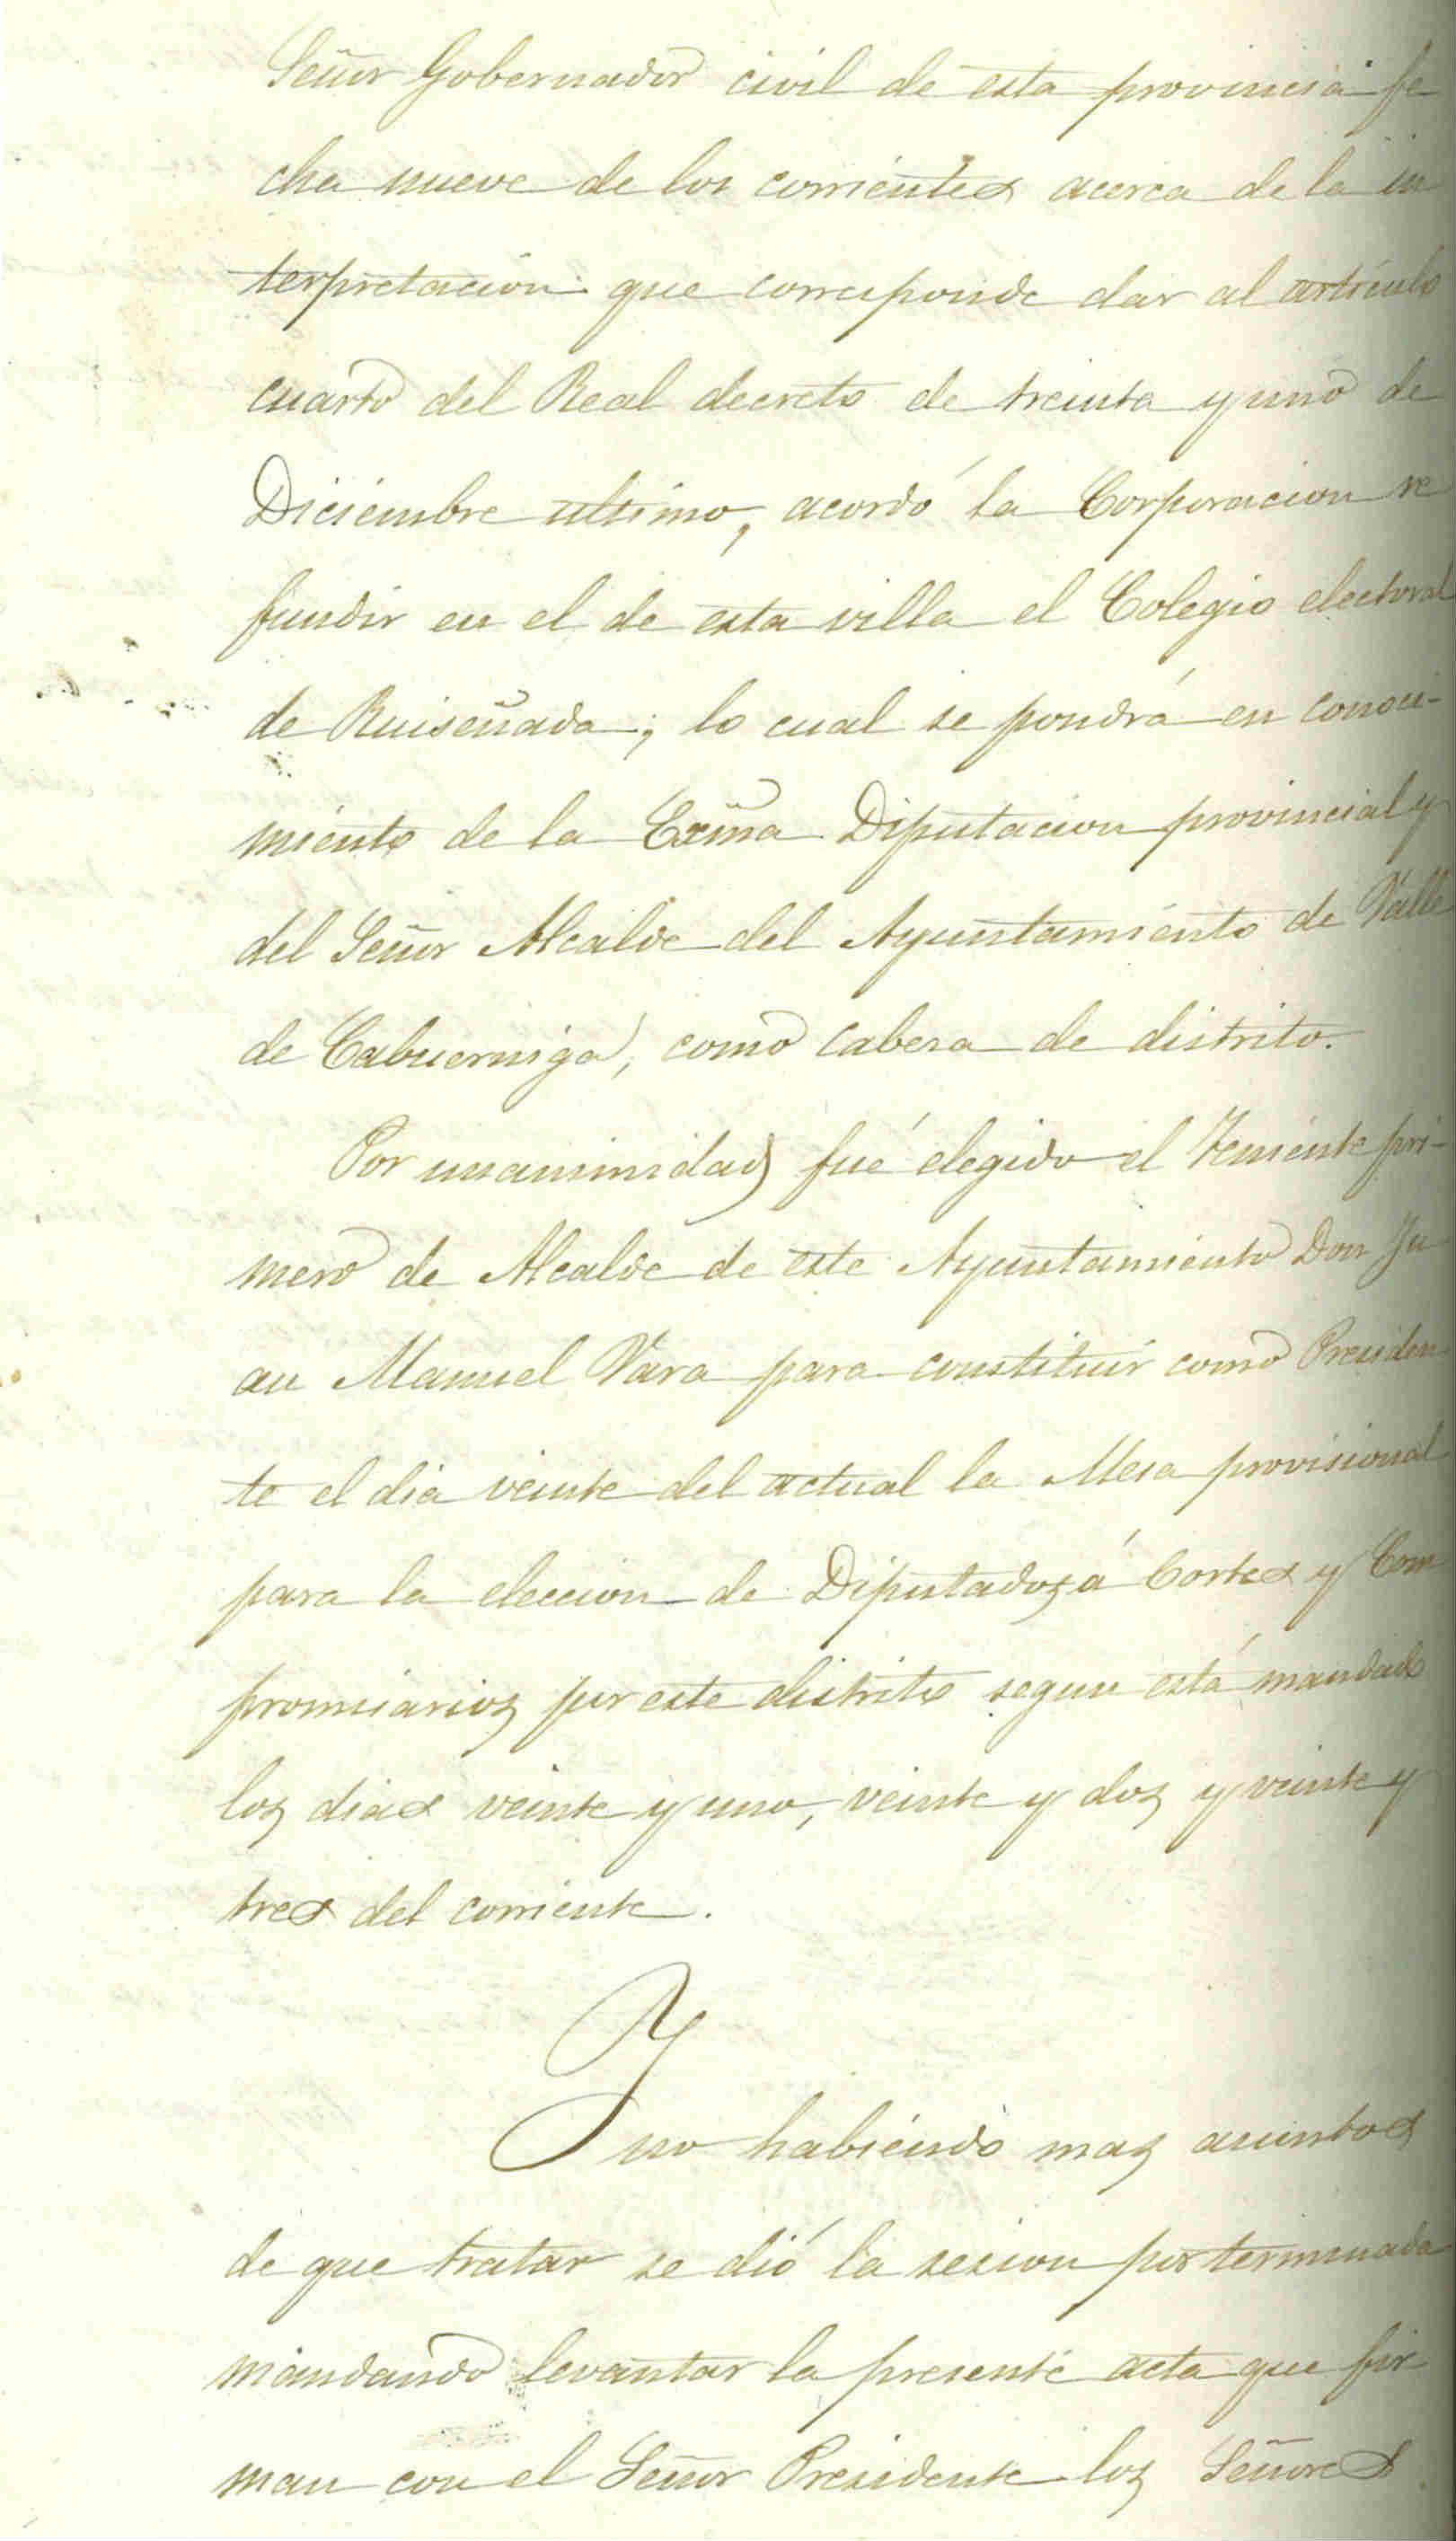 Señor Gobernador civil de esta provincia fe
cha nueve de los corrientes acerca de la in
terpretacion que corresponde dar al artículo
cuarto del Real decreto de treinta y uno de
Diciembre ultimo, acordó la Corporacion re
fundir en el de esta villa el Colegio electoral
de Ruiseñada; lo cual se pondrá en conoci-
miento de la Exma Diputacion provincial y
del Señor Alcalde del Ayuntamiento de Valle
de Cabuerniga, como cabeza de distrito.
Por unanimidad fué elegido el Teniente pri-
mero de Alcalde de este Ayuntamiento Don Ju
an Manuel Vara para constituir como Presiden
te el dia veinte del actual la Mesa provisional
para la eleccion de Diputados á Cortes y Com
promisarios por este distrito segun está mandado
los dias veinte y uno, veinte y dos y veinte y
tres del corriente.
Y
no habiendo mas asuntos
de que tratar se dió la sesion por terminada
mandando levantar la presente acta que fir
man con el Señor Presidente los Señores